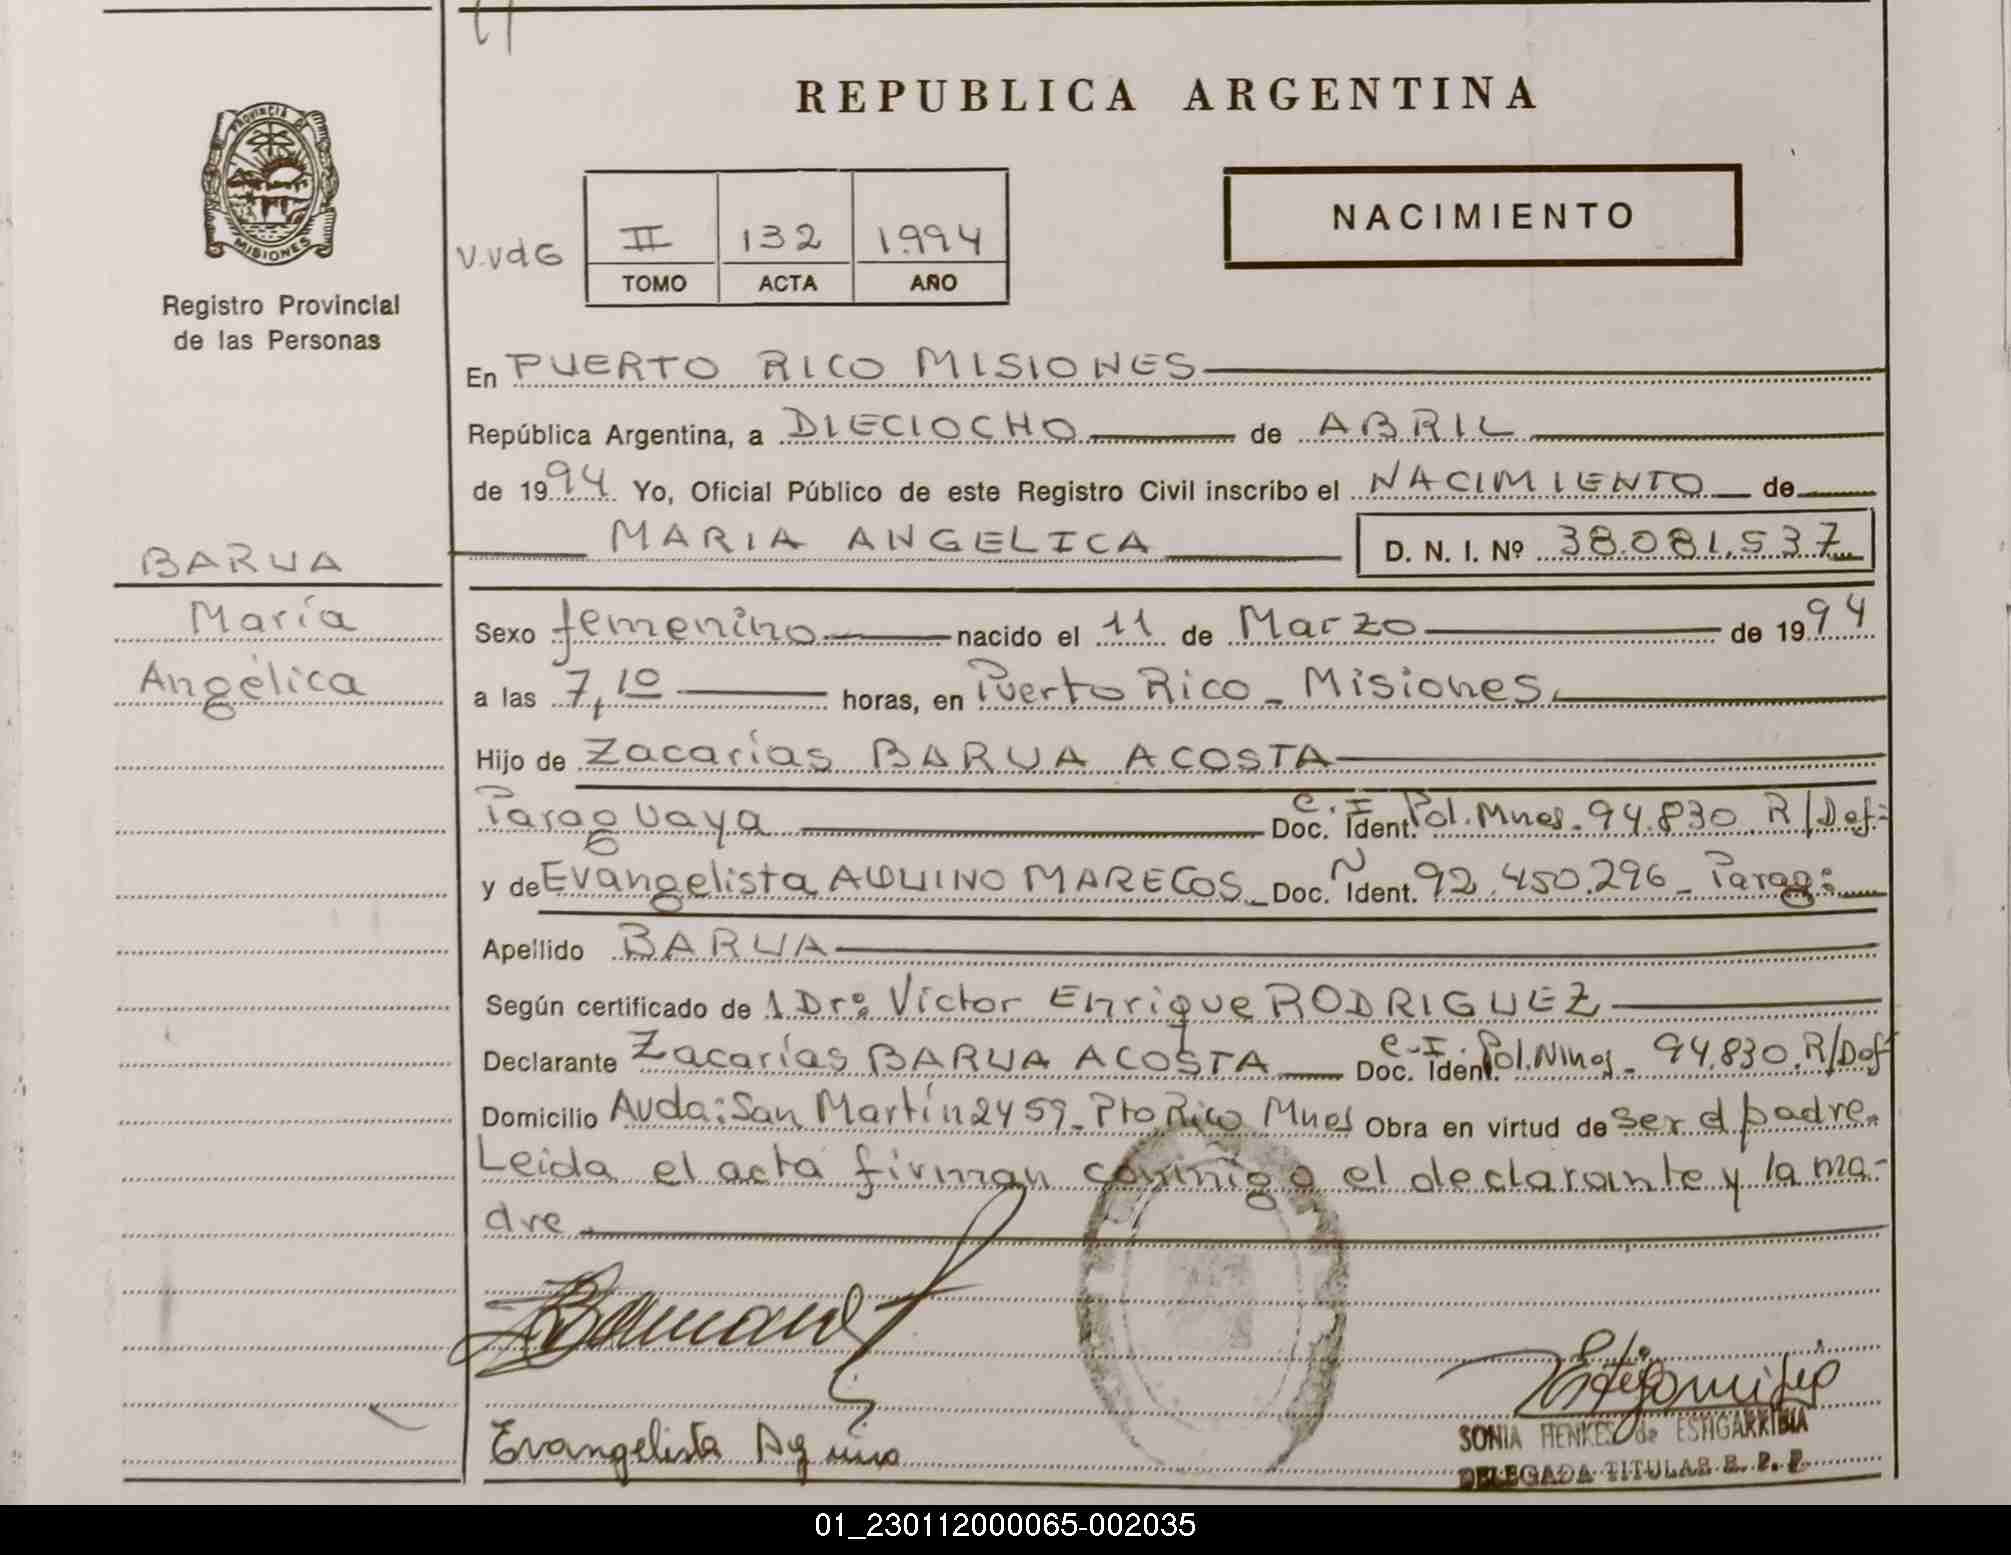 REPUBLICA ARGENTINA
PROVINCIA DE
MISIONES
Registro Provincial
de las Personas
NACIMIENTO
V.VdG
II 132 1994
TOMO ACTA AÑO
En PUERTO RICO MISIONES
República Argentina, a DIECIOCHO de ABRIL
de 1994 Yo, Oficial Público de este Registro Civil inscribo el NACIMIENTO de
MARIA ANGELICA D. N. I. Nº 38.081.537
BARUA
María
Angélica
Sexo femenino nacido el 11 de Marzo de 1994
a las 7,10 horas, en Puerto Rico - Misiones.
Hijo de Zacarías BARUA ACOSTA
Paraguaya Doc. Ident. C.I. Pol. Mnes. 94.830 R/Def.
y de Evangelista AQUINO MARECOS Doc. Ident. Nº 92.450.296 - Parag:
Apellido BARUA
Según certificado de 1 Dr: Víctor Enrique RODRIGUEZ
Declarante Zacarías BARUA ACOSTA Doc. Ident. C.I. Pol. Mnes - 94.830. R/Def
Domicilio Avda: San Martín 2459 - Pto Rico Mnes Obra en virtud de ser el padre.
Leida el acta firman conmigo el declarante y la ma-
dre.
Evangelista Aquino
SONIA HENKES de ESTIGARRIBIA
DELEGADA TITULAR R. P. P.
01_230112000065-002035